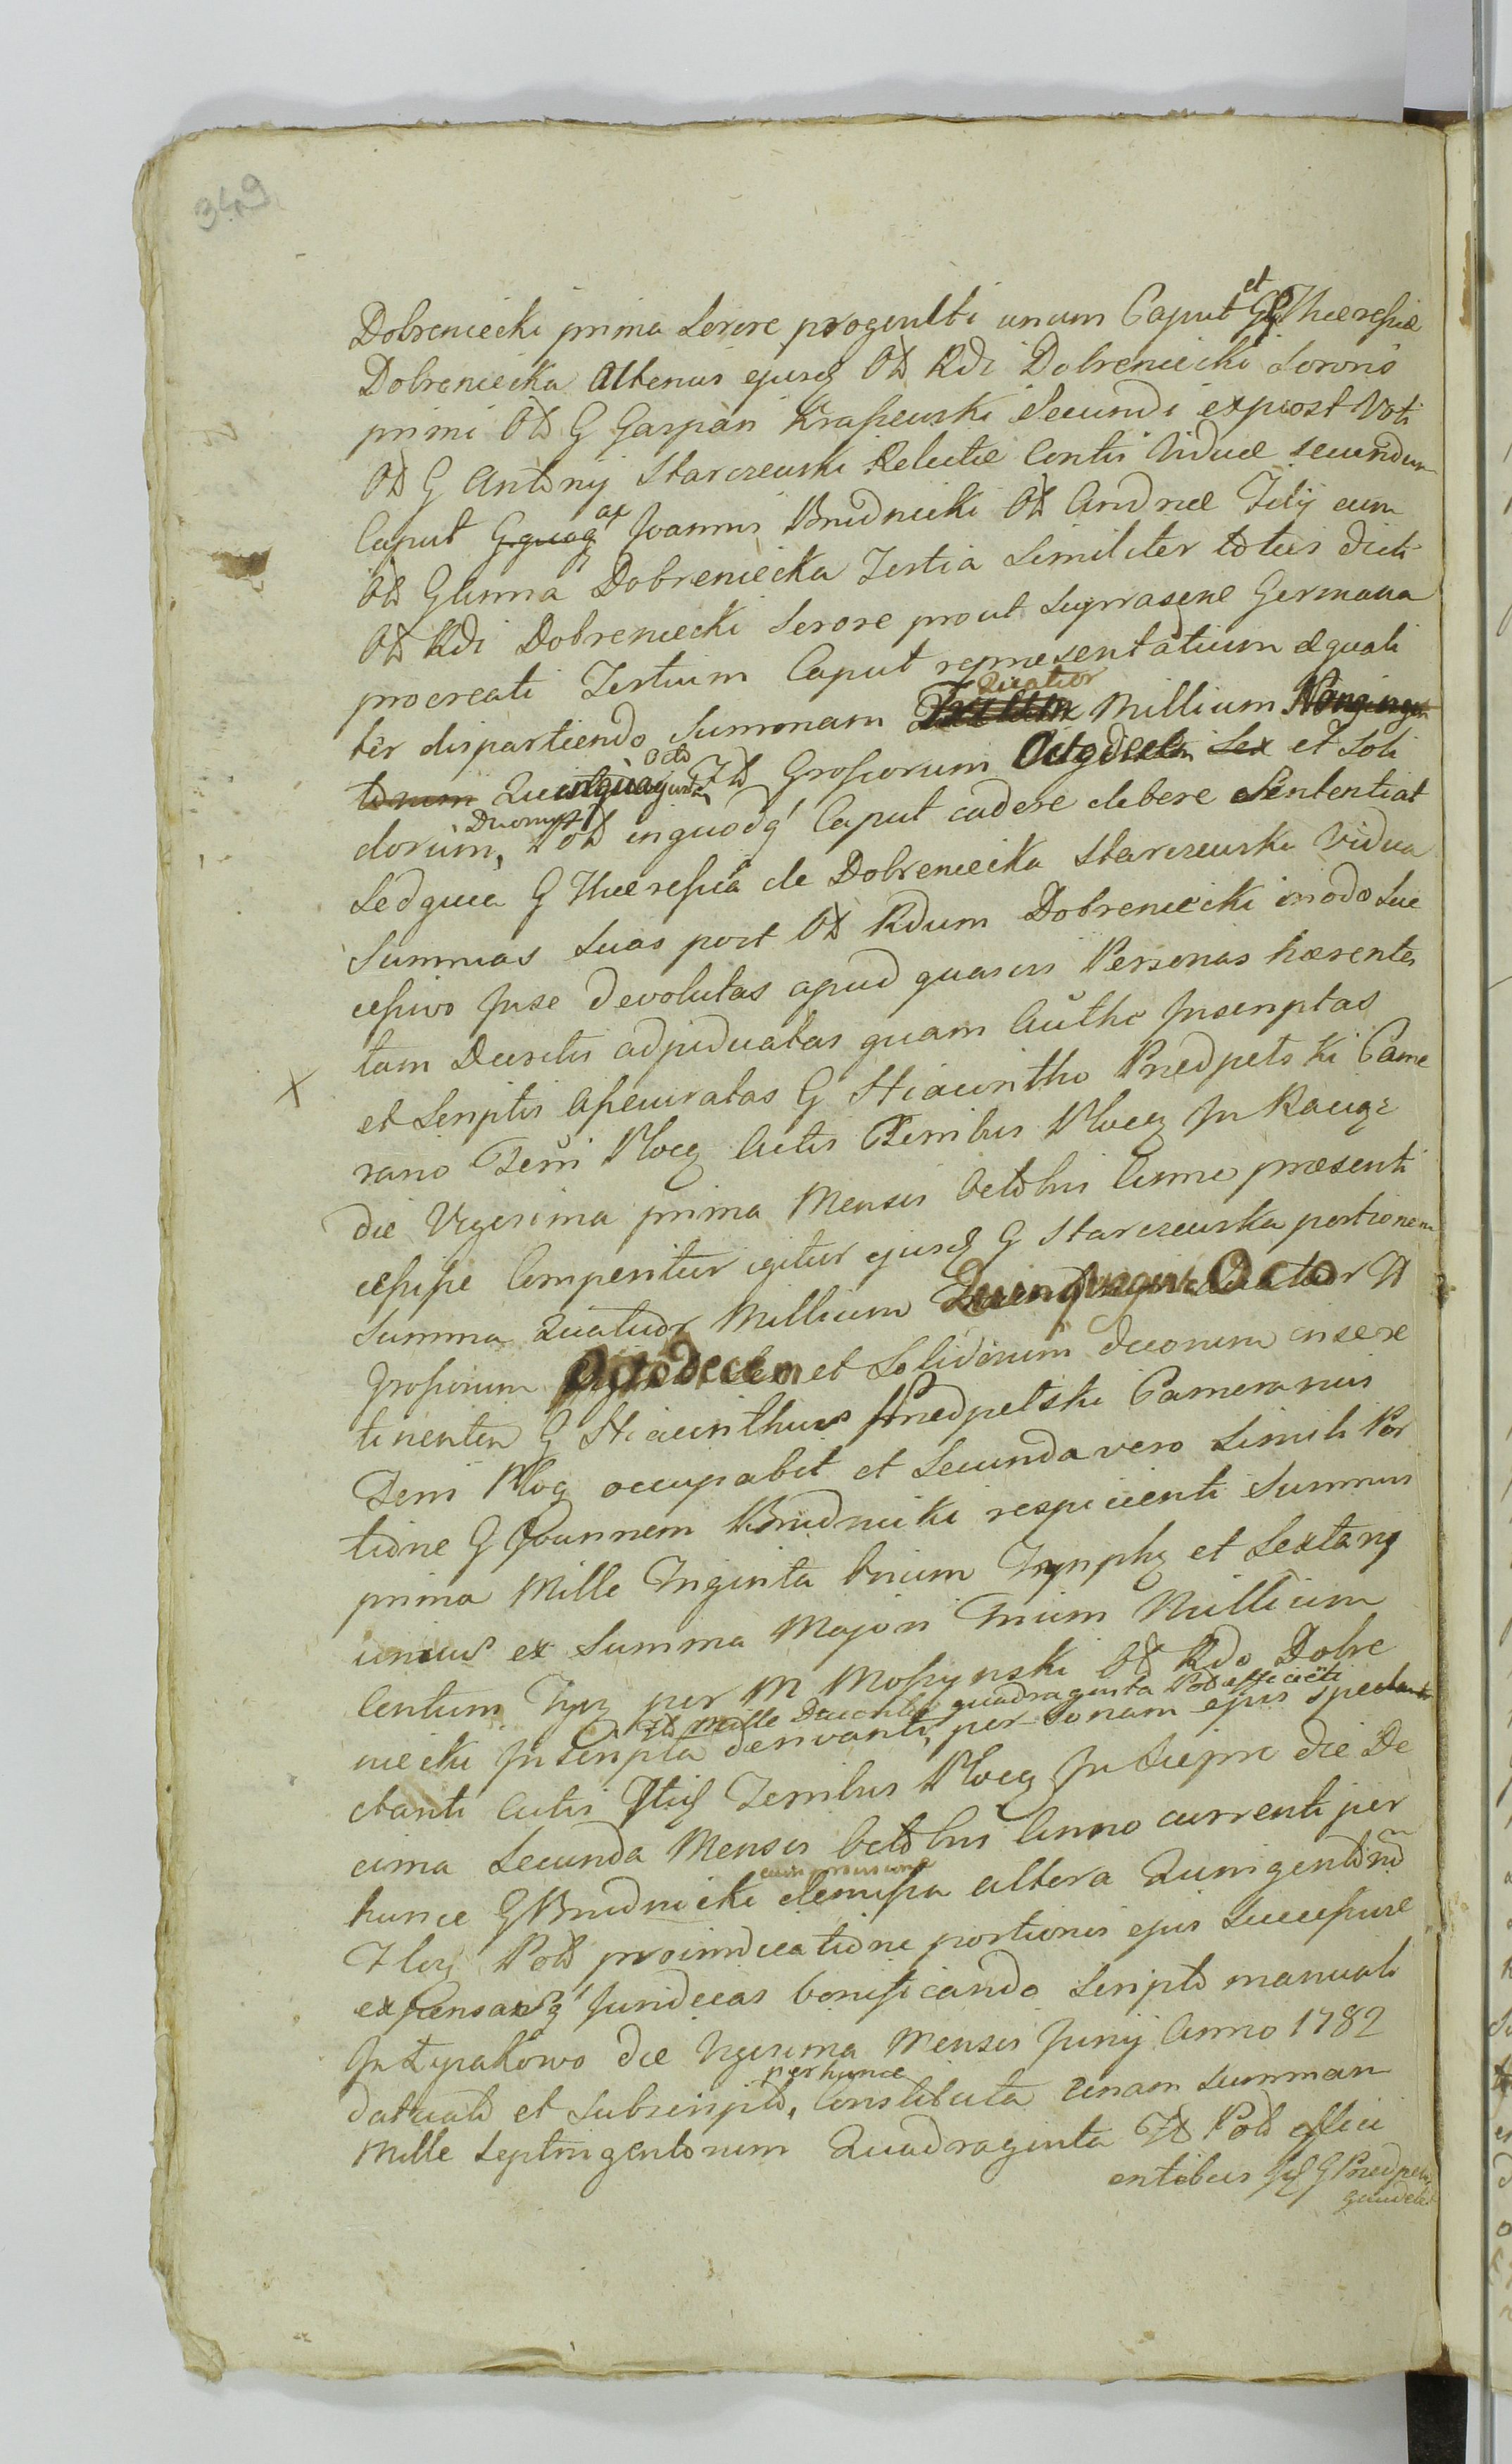 349
Dobreniecki prima Sorore progeniti unum Caput et GG Theresiæ
Dobreniecka Alterius ejusq Olt Rdi Dobreniecki Sororis
primi Olt G Gaspari Krassewski Secundi expost Voti
Olt G Antonij Starczewski Relictæ Contis Viduæ secundum
Caput ac Joannis Brudnicki Olt Andreæ Filij cum
Olt G Anna Dobreniecka Tertia Similiter totius dicti
Olt Rdi Dobreniecki Sorore prout Suprasene Germana
procreati Tertium Caput representatium æquali
ter dispartiendo Summam Quatuor Millium
Quinquaginta Octo Flt Grossorum Octodecim et Soli
dorum Duorum, Polt inquodq Caput cadere debere Sententiat
Sedquia G Theresia de Dobreniecka Starczewska Vidua
Summas Suas post Olt Rdum Dobreniecki modo Suc
cessivo Jnse devolutas apud quasvis Personas hærentes
tam Decretis adjudicatas quam Authe Jnscriptas
et Scriptis Assecuratas G Hiacintho Przedpelski Came
rario Terri Plocq Actis Terribus Plocq Jn Raciąz
die Vigesima prima Mensis Octobris Anno præsenti
cessisse Comperitur igitur ejusq G Starczewska portionem
Summa Quatuor Millium Quinquaginta Octo Flt
Grossorum Octodecem et Solidorum duorum insere
tinentem G Hiacinthus Przedpelski Camerarius
Terri Plocq occupabit et Secunda vero Simili Por
tione G Joannem Brudnicki respicienti Summis
prima Mille Triginta trium Tynphq et Sextarij
unius ex Summa Majori Trium Millium
Centum Tynq per M Mossynski Olt Rdo Dobre
niecki Jnscripta derivanti, Flt Mille Ducentos quadraginta Polt efficiēti per Sonam ejus spectanti
ctanti Actis Terribus Plocq Jn Sierpiec die De
cima Secunda Mensis Octobris Anno currenti per
hunce G Brudnicki cum provisione demissa altera Quingentorū
Flory Polt proindicatione portionis ejus Successivæ
expensasq Juridicas bonificando Scripto manuali
Jn Łyrakowo die Vigesima Mensis Junij Anno 1782
datuato et Subscripto, per hunce Constituta unam summam
Mille Septingentorum Quadraginta Flt Polt effici
entibus G Przedpelski
gaudebit